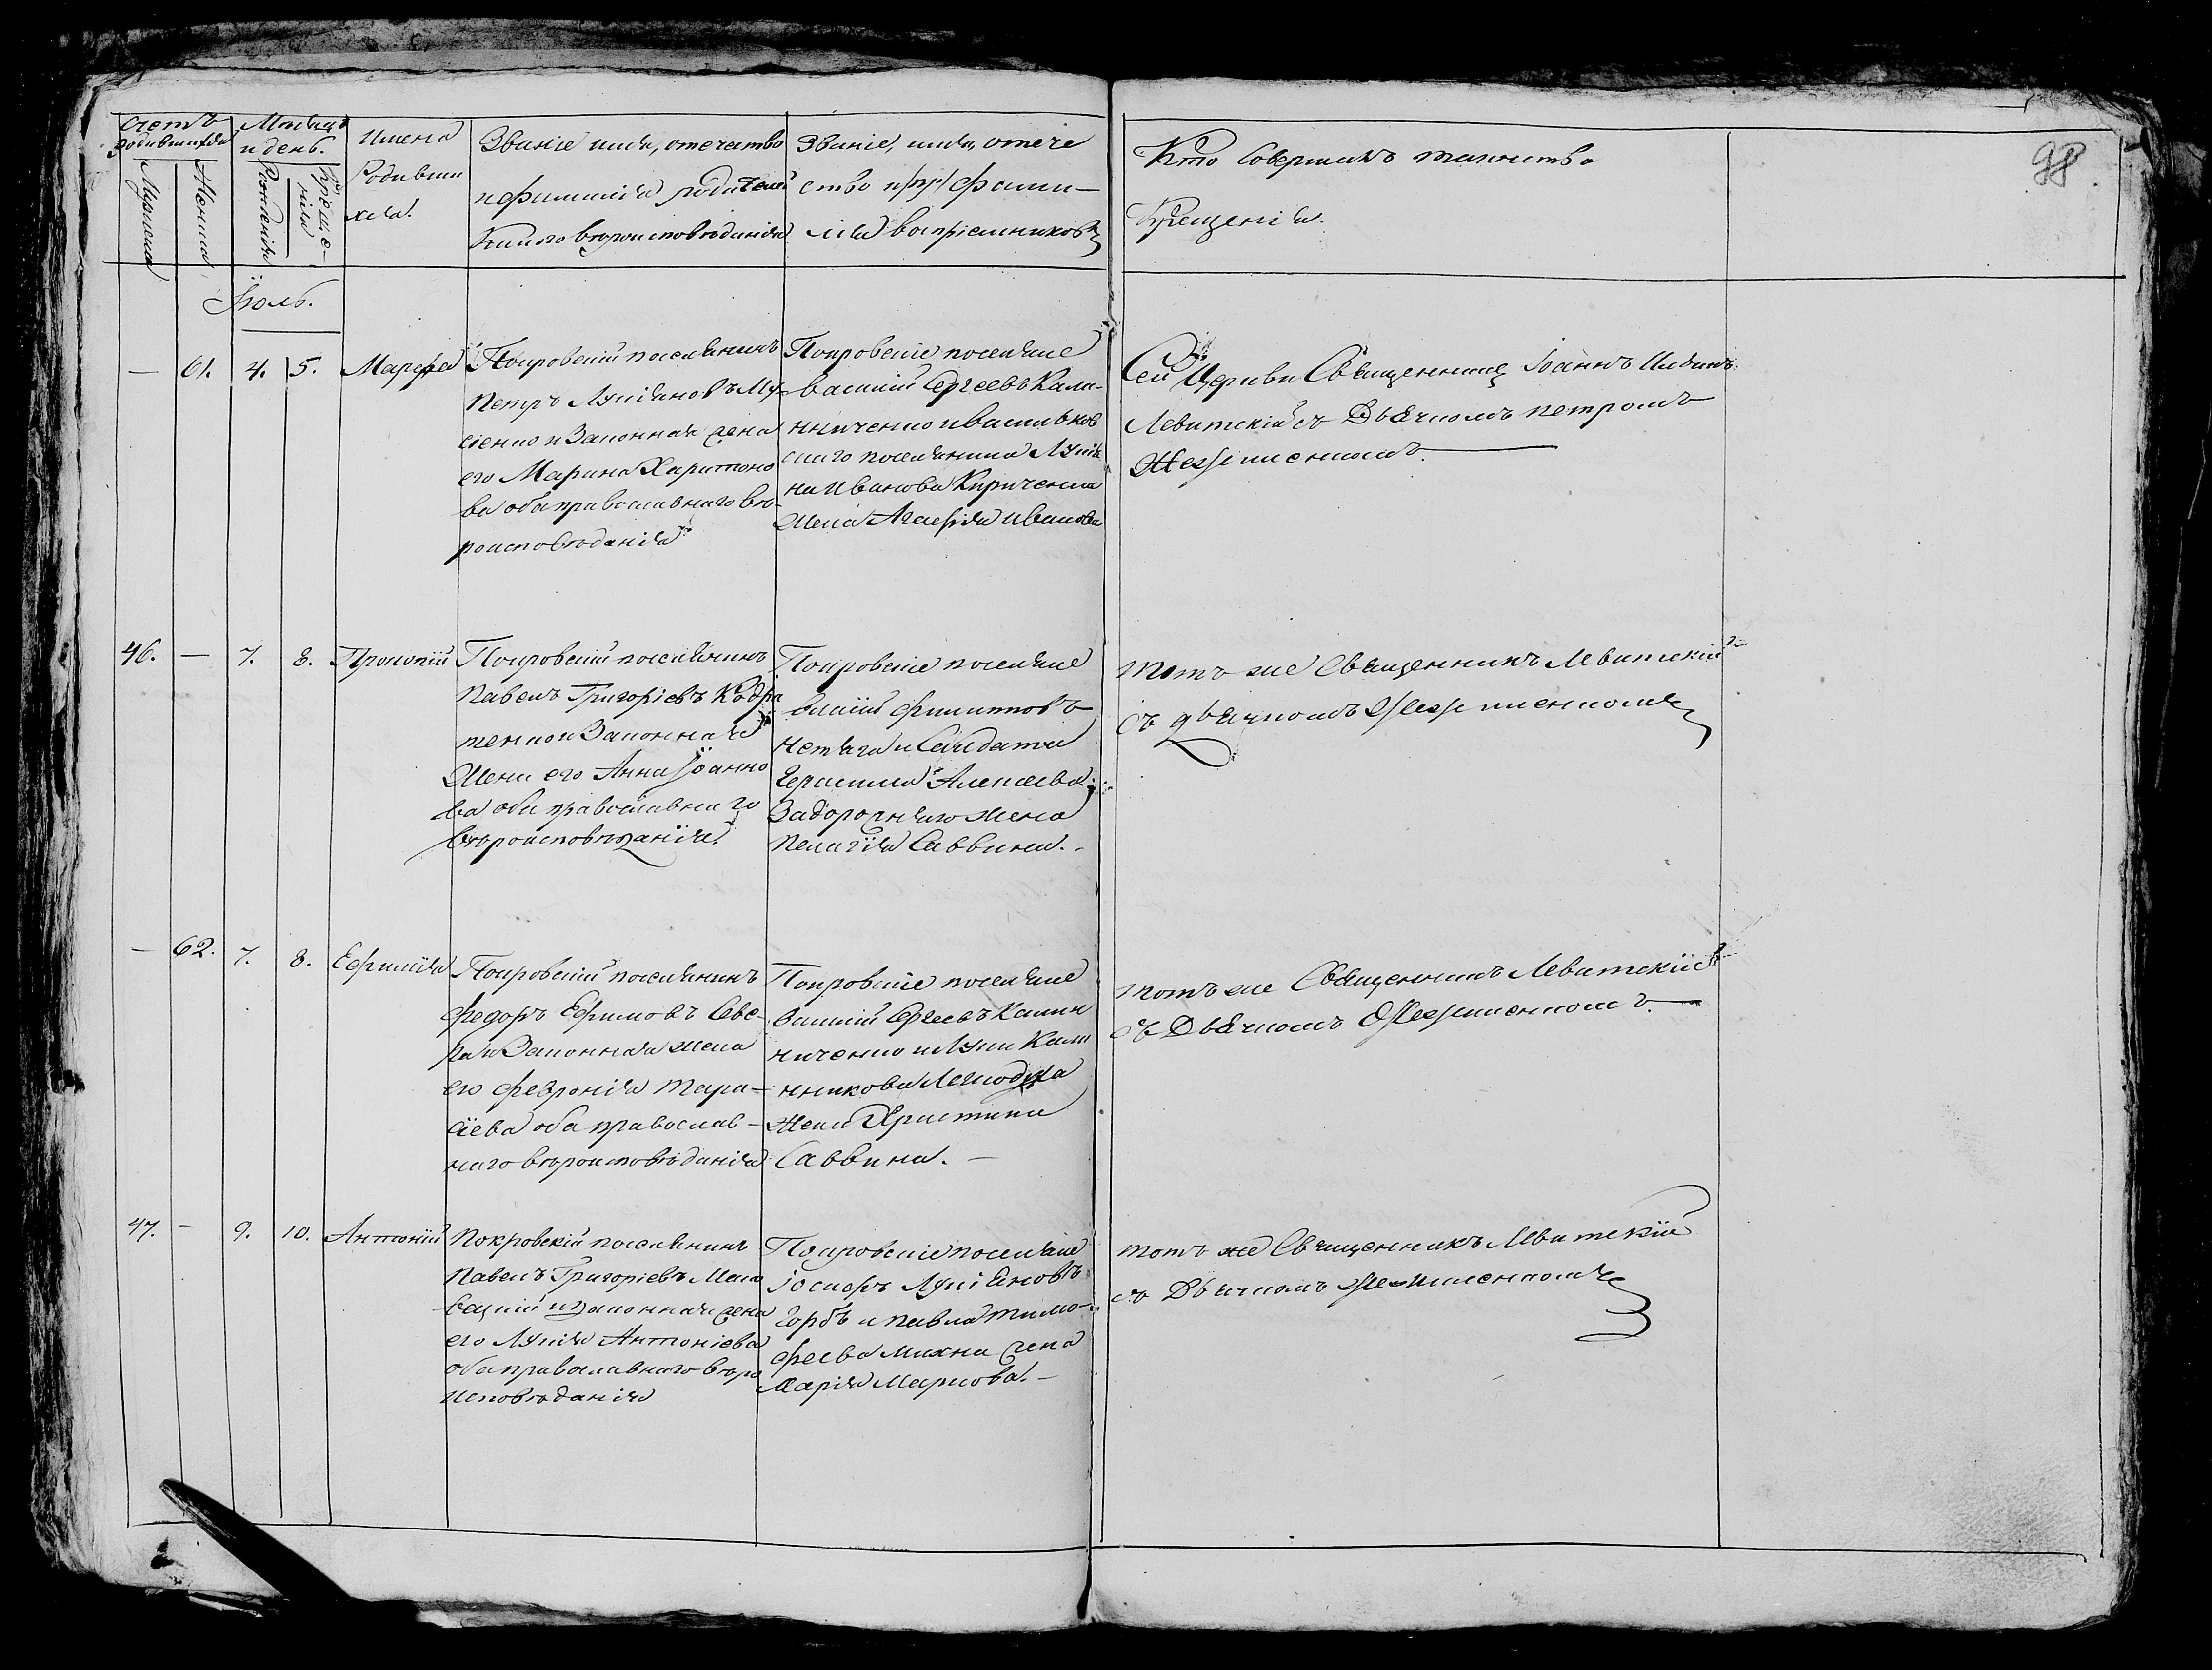 счетъ
родившихся
Мужеска
Женска
Мѣсяцъ
и день.
Рожденія
Креще-
нія
Имена
Родивши
хся.
Званіе имя, отечество
и фамилія родителей
Какого вѣроисповѣданія
Званіе, имя, отече
ство и фами-
лія воспріемниковъ
Кто Совершалъ таинство
Крещенія.
98.
Іюль.
— 61. 4. 5. Марфа
Покровскій поселянинъ
Петръ Лукіяновъ
и Законная жена
его Марина Харитоно
ва оба православнаго вѣ-
роисповѣданія
Покровскіе поселяне
Василій Сергеевъ Кали-
нниченко и Васильков
скаго поселянина Лукія
на Иванова Кириченка
жена Агафія Иванова
Сей Церкви Священникъ Іоаннъ
Левитскій съ Дьячкомъ Петромъ
46. — 7. 8. Прокопій
Покровскій поселянинъ
Павелъ Григоріевъ Кодра
тенко и Законная
Жена его Анна Іоанно
ва оба православнаго
вѣроисповѣданія.
Покровскіе поселяне
Власій Филипповъ
Нетяга и Салдата
Герасима Алексѣева
Задорожняго жена
Пелагія Саввина.-
тотъ же Священникъ Левитскій
съ дьячкомъ
— 62. 7. 8. Ефимія
Покровскій поселянинъ
Федоръ Ефимовъ Севе-
ра и Законная жена
его Феврония Тара-
сіева оба православ-
наго вѣроисповѣданія
Покровскіе поселяне
Василій Сергеевъ Калин
ниченко и Луки Кали
нникова
Жена Христина
Саввина. —
тотъ же Священникъ Левитскій
съ Дьячкомъ
47. — 9. 10. Антоній
Покровскій поселянинъ
Павелъ Григоріевъ
и законная жена
его Лукія Антоніева
оба православнаго вѣро
исповѣданія
Покровскіе поселяне
Іосифъ Лукіяновъ
Горбъ и Павла Тимо-
феева Махна жена
Марія Маркова.—
тотъ же Священникъ Левитскій
съ Дьячкомъ